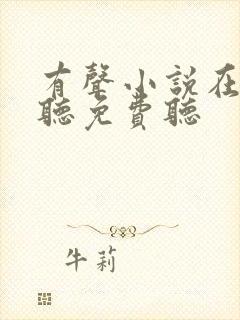 有聲小說在
聽免費聽
牛莉